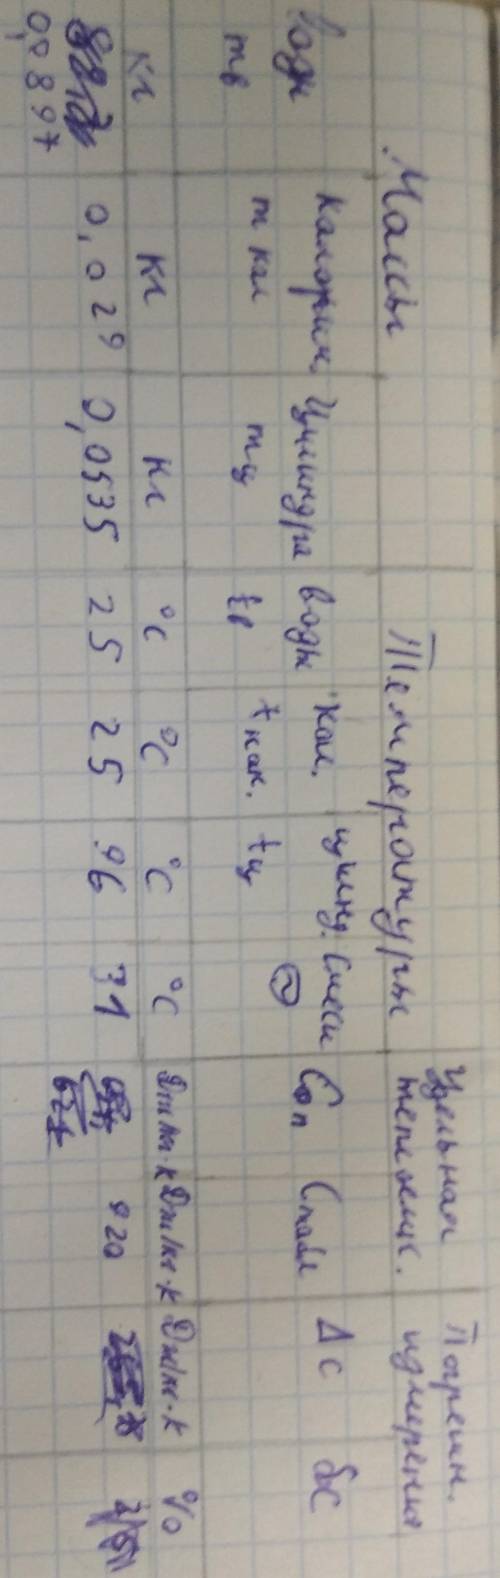 Массы Температуры Удельная теплоемк. Погрешн. измерения
воды калорим. цилиндра воды кал. цилинд. смеси Соп Стабл Δc δc
mв m кал mц tв t кал. tц
кг кг кг °C °C °C °C Дж/кг·К Дж/кг·К Дж/кг·К %
0,029 0,0535 25 25 96 31 920
0,0897